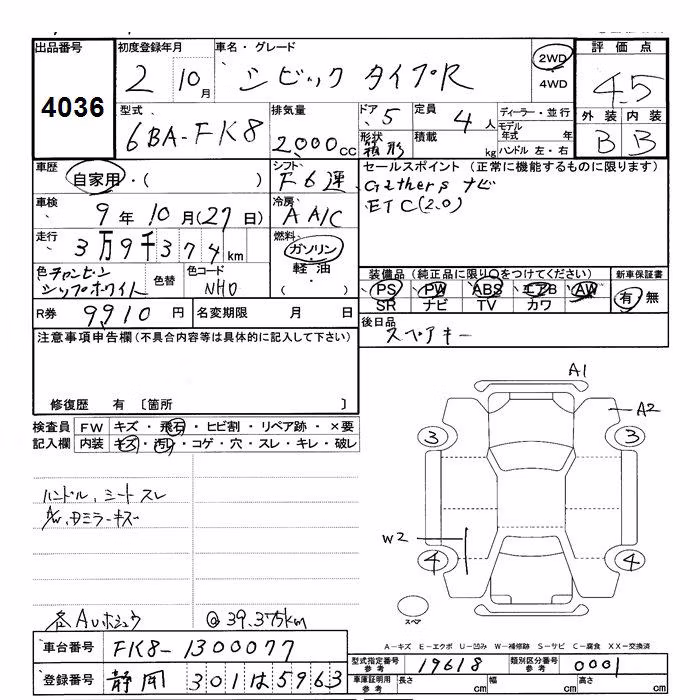 出品番号
4036
初度登録年月
2 10月
車名・グレード
シビック タイプR
2WD
4WD
評価点
4.5
外装 内装
B B
型式
6BA-FK8
排気量
2000cc
ドア 5
形状 箱形
定員 4人
積載 kg
ディーラー・並行
モデル年式 年
ハンドル 左・右
車歴
自家用・( )
シフト
F6速
セールスポイント (正常に機能するものに限ります)
Gathers ナビ
ETC(2.0)
車検
9年10月(27日)
冷房
AA/C
走行
3万9千374km
燃料
ガソリン
軽油
( )
色 チャンピオンシップホワイト
色替
色コード
NH0
装備品 (純正品に限り○をつけてください)
PS PW ABS エアB AW
SR ナビ TV カワ
新車保証書
有・無
R券 9,910円
名変期限 月 日
後日品
スペアキー
注意事項申告欄(不具合内容等は具体的に記入して下さい)
修復歴 有 〔箇所 〕
検査員記入欄
FW キズ・飛石・ヒビ割・リペア跡・×要
内装 キズ・汚れ・コゲ・穴・スレ・キレ・破レ
ハンドル、シート スレ
A/W、Dミラーキズ
@39,375km
A1
A2
3 3
W2
4 4
スペア
A-キズ E-エクボ U-凹み W-補修跡 S-サビ C-腐食 XX-交換済
車台番号 FK8-1300077
登録番号 静岡 301 は 5963
型式指定番号 参考 19618
類別区分番号 参考 0001
車庫証明用 参考 長さ cm 幅 cm 高さ cm